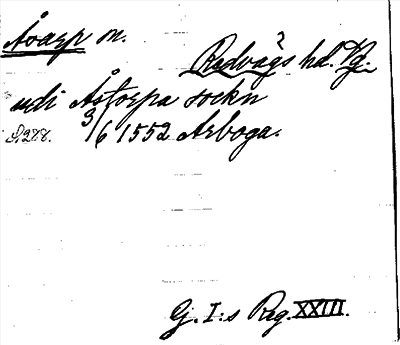 Åoarp m.
?
Redvägs hd. Vg.
udi Åstorpa sockn
S. 288. 3/6 1552 Arboga.
G. I:s Reg. XXIII.